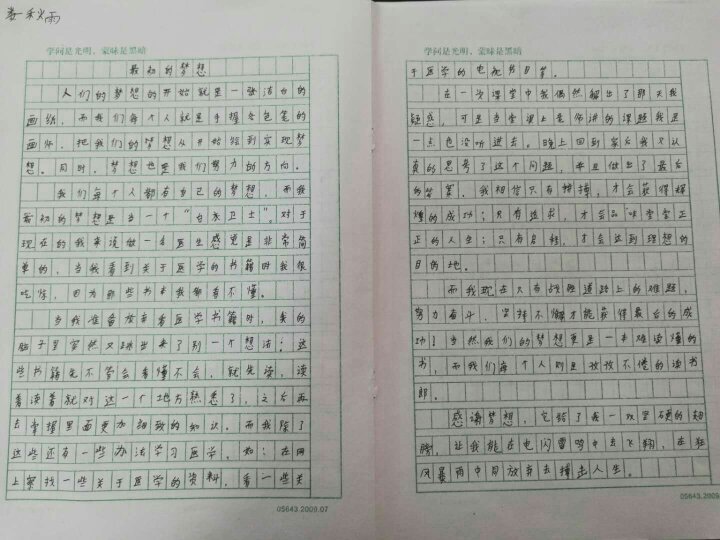 娄秋雨
学问是光明，蒙昧是黑暗
最初的梦想
人们的梦想的开始就是一张洁白的
画纸，而我们每个人就是手握各色笔的
画师，把我们的梦想从开始绘到实现梦
想。同时，梦想也是我们努力的方向。
我们每个人都有自己的梦想，而我
最初的梦想是当一个“白衣卫士”。对于
现在的我来说做一名医生感觉是非常简
单的，当我看到关于医学的书籍时我很
吃惊，因为那些书本我都看不懂。
当我准备放弃看医学书籍时，我的
脑子里突然又跳出来了别一个想法：这
些书籍先不管会看懂不会，就先读，读
着读着就对这一个地方熟悉了，之后再
去掌握里面更加细致的知识。而我除了
这些还有一些办法学习医学，如：在网
上察找一些关于医学的资料，看一些关
05643.2009.07
学问是光明，蒙昧是黑暗
于医学的电视节目等。
在一次课堂中我偶然解出了那天我
疑惑，可是当堂课上老师讲的课题我是
一点也没听进去。晚上回到家后我又认
真的思考了这个问题，并且做出了最后
的答案。我相信只有拼搏，才会获得辉
煌的成功；只有追求，才会品味堂堂正
正的人生；只有启程，才会达到理想的
目的地。
而我现在只有战胜道路上的难题，
努力奋斗，坚持不懈才能获得最后的成
功！当然我们的梦想更是一本难读懂的
书，而我们每个人则是孜孜不倦的读书
郎。
感谢梦想，它给了我一双坚硬的翅
膀，让我能在电闪雷鸣中去飞翔，在狂
风暴雨中同放弃去撞击人生。
05643.2009